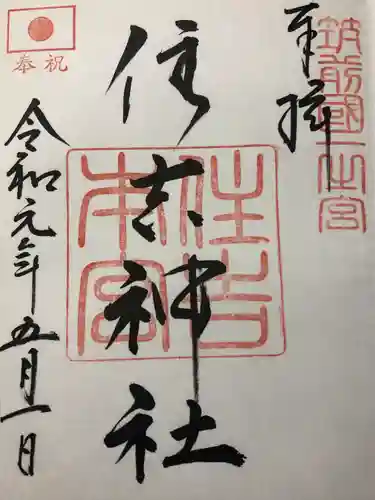 奉拝
筑前國一之宮
住吉神社
住吉本宮
奉祝
令和元年五月一日